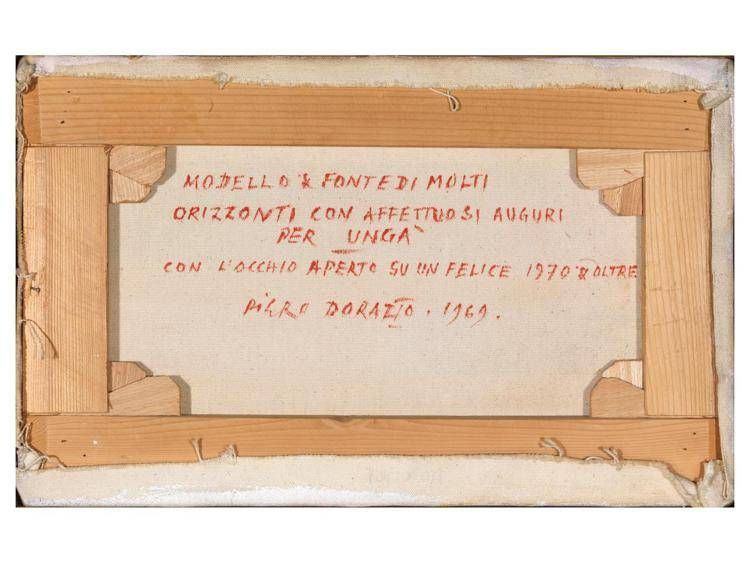 MODELLO & FONTE DI MOLTI
ORIZZONTI CON AFFETTUOSI AUGURI
PER UNGA`
CON L'OCCHIO APERTO SU UN FELICE 1970 & OLTRE
PIERO DORAZIO . 1969 .